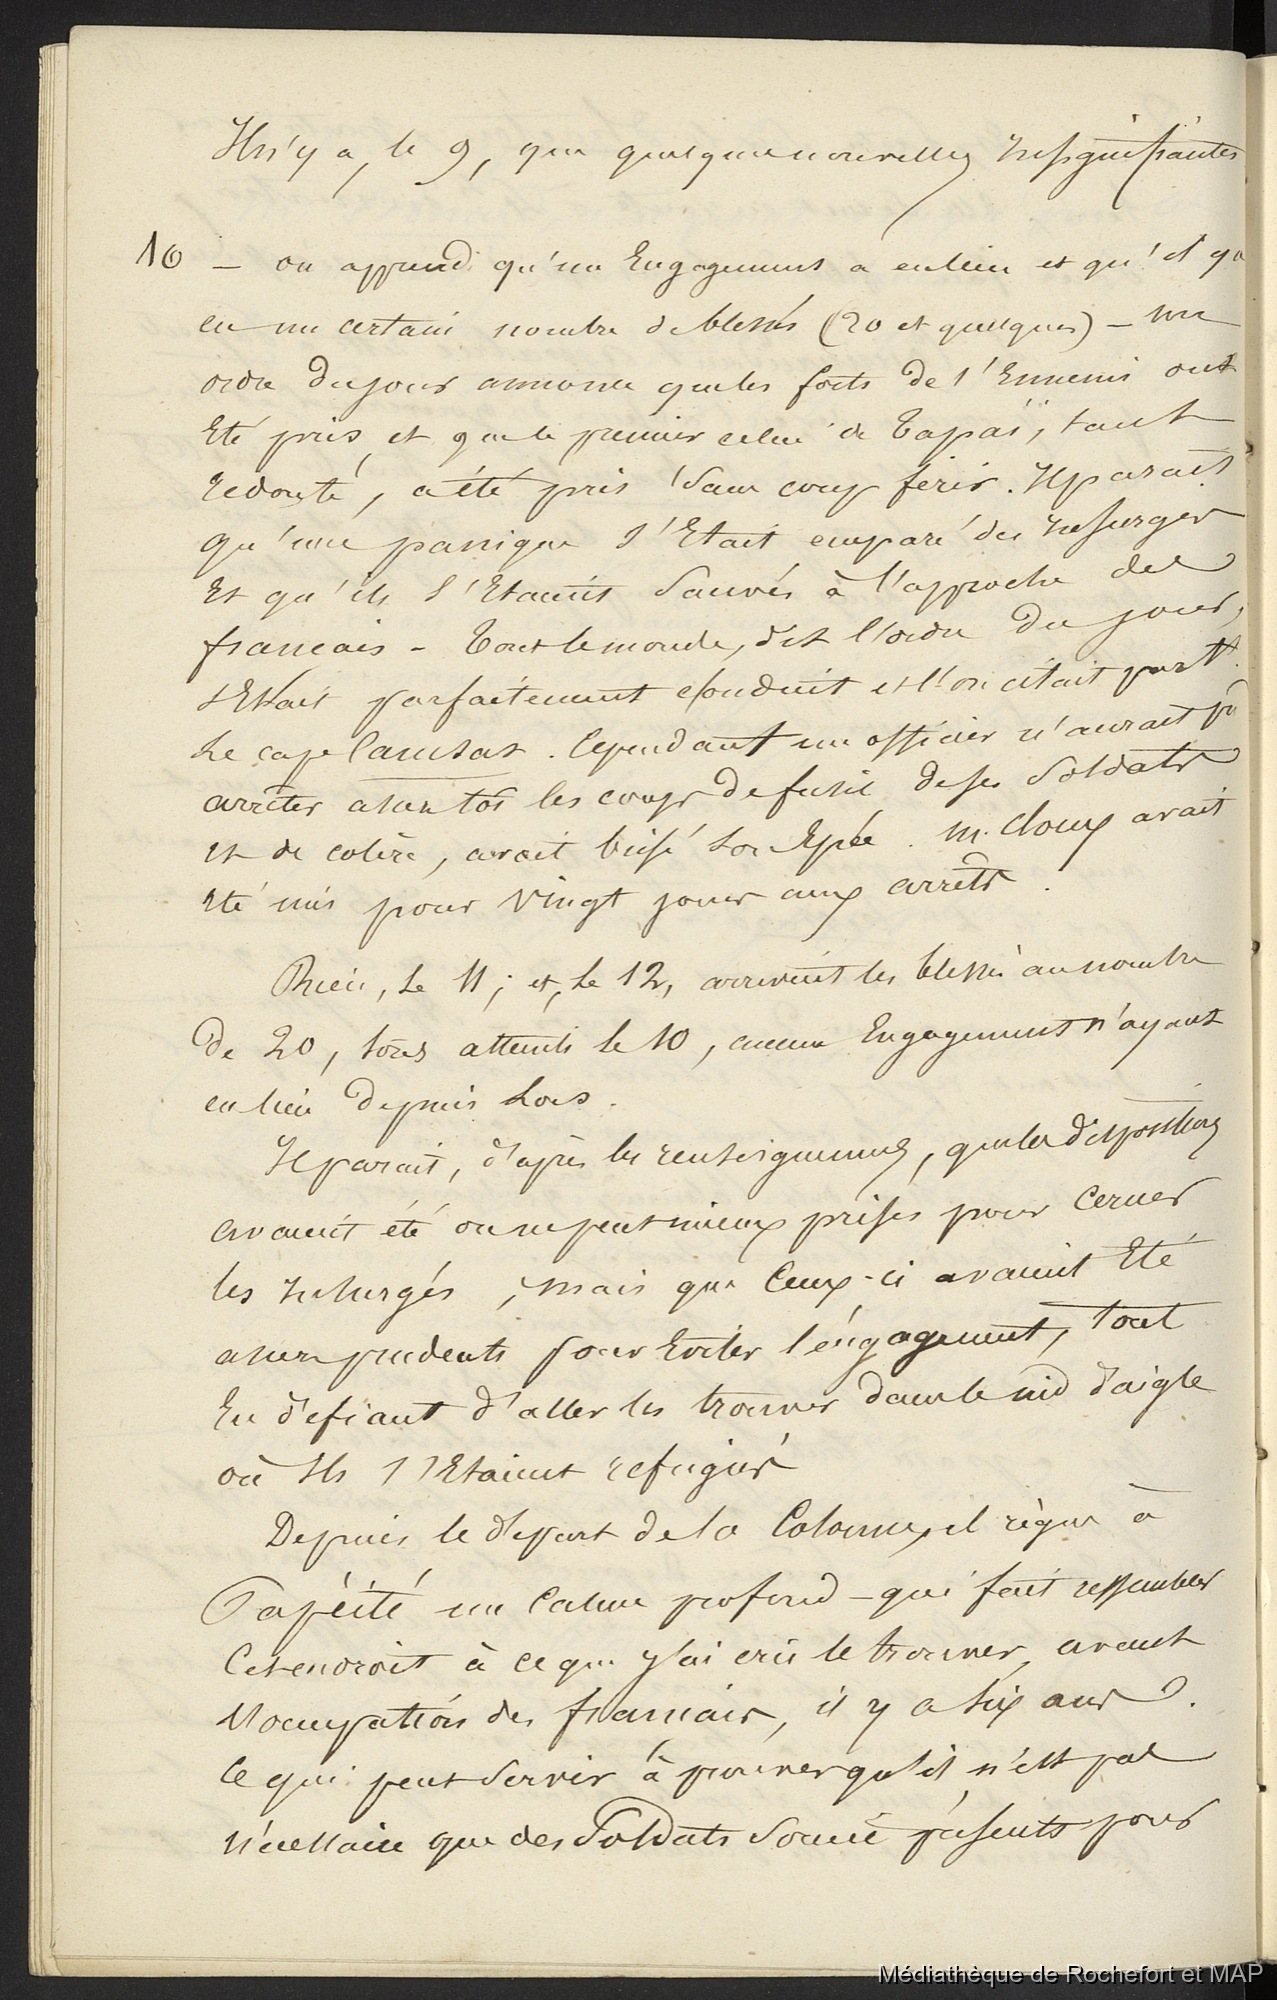 Il n'y a, le 9, que quelques nouvelles insignifiantes
10 — on apprend qu'un Engagement a eu lieu et qu'il y a
eu un certain nombre de blessés (20 et quelques) — un
ordre du jour annonce que les forts de l'Ennemi ont
Eté pris, et que le premier celui de Tapaï, tant
redouté, a été pris sans coup férir. Il paraît
qu'une panique s'Etait emparé des insurgés
Et qu'ils s'Etaient sauvés à l'approche des
français - Tout le monde, dit l'ordre du jour,
s'Etait parfaitement conduit et l'on citait
Le cap. . Cependant un officier n'aurait pu
arrêter assez tôt les coups de fusil de ses soldats
et de colère, avait brisé son Epée. M. avait
Eté mis pour vingt jours aux arrêts.
Rien, le 11; et, le 12, arrivent les blessés au nombre
de 20, tous atteints le 10, aucun Engagement n'ayant
eu lieu depuis lors.
Il parait, d'après les renseignements, que les dispositions
avaient été on ne peut mieux prises pour Cerner
les insurgés, mais que Ceux-ci avaient Eté
assez prudents pour Eviter l'engagement, tout
En défiant d'aller les trouver dans le nid d'aigle
où Ils s'Etaient refugiés
Depuis le départ de la Colonne, il règne à
Papéité un Calme profond - qui fait ressembler
Cet endroit à ce que j'ai cru le trouver, avant
l'occupation des français, il y a six ans.
Ce qui peut servir à prouver qu'il n'est pas
nécessaire que des Soldats soient présents pour
Médiathèque de Rochefort et MAP